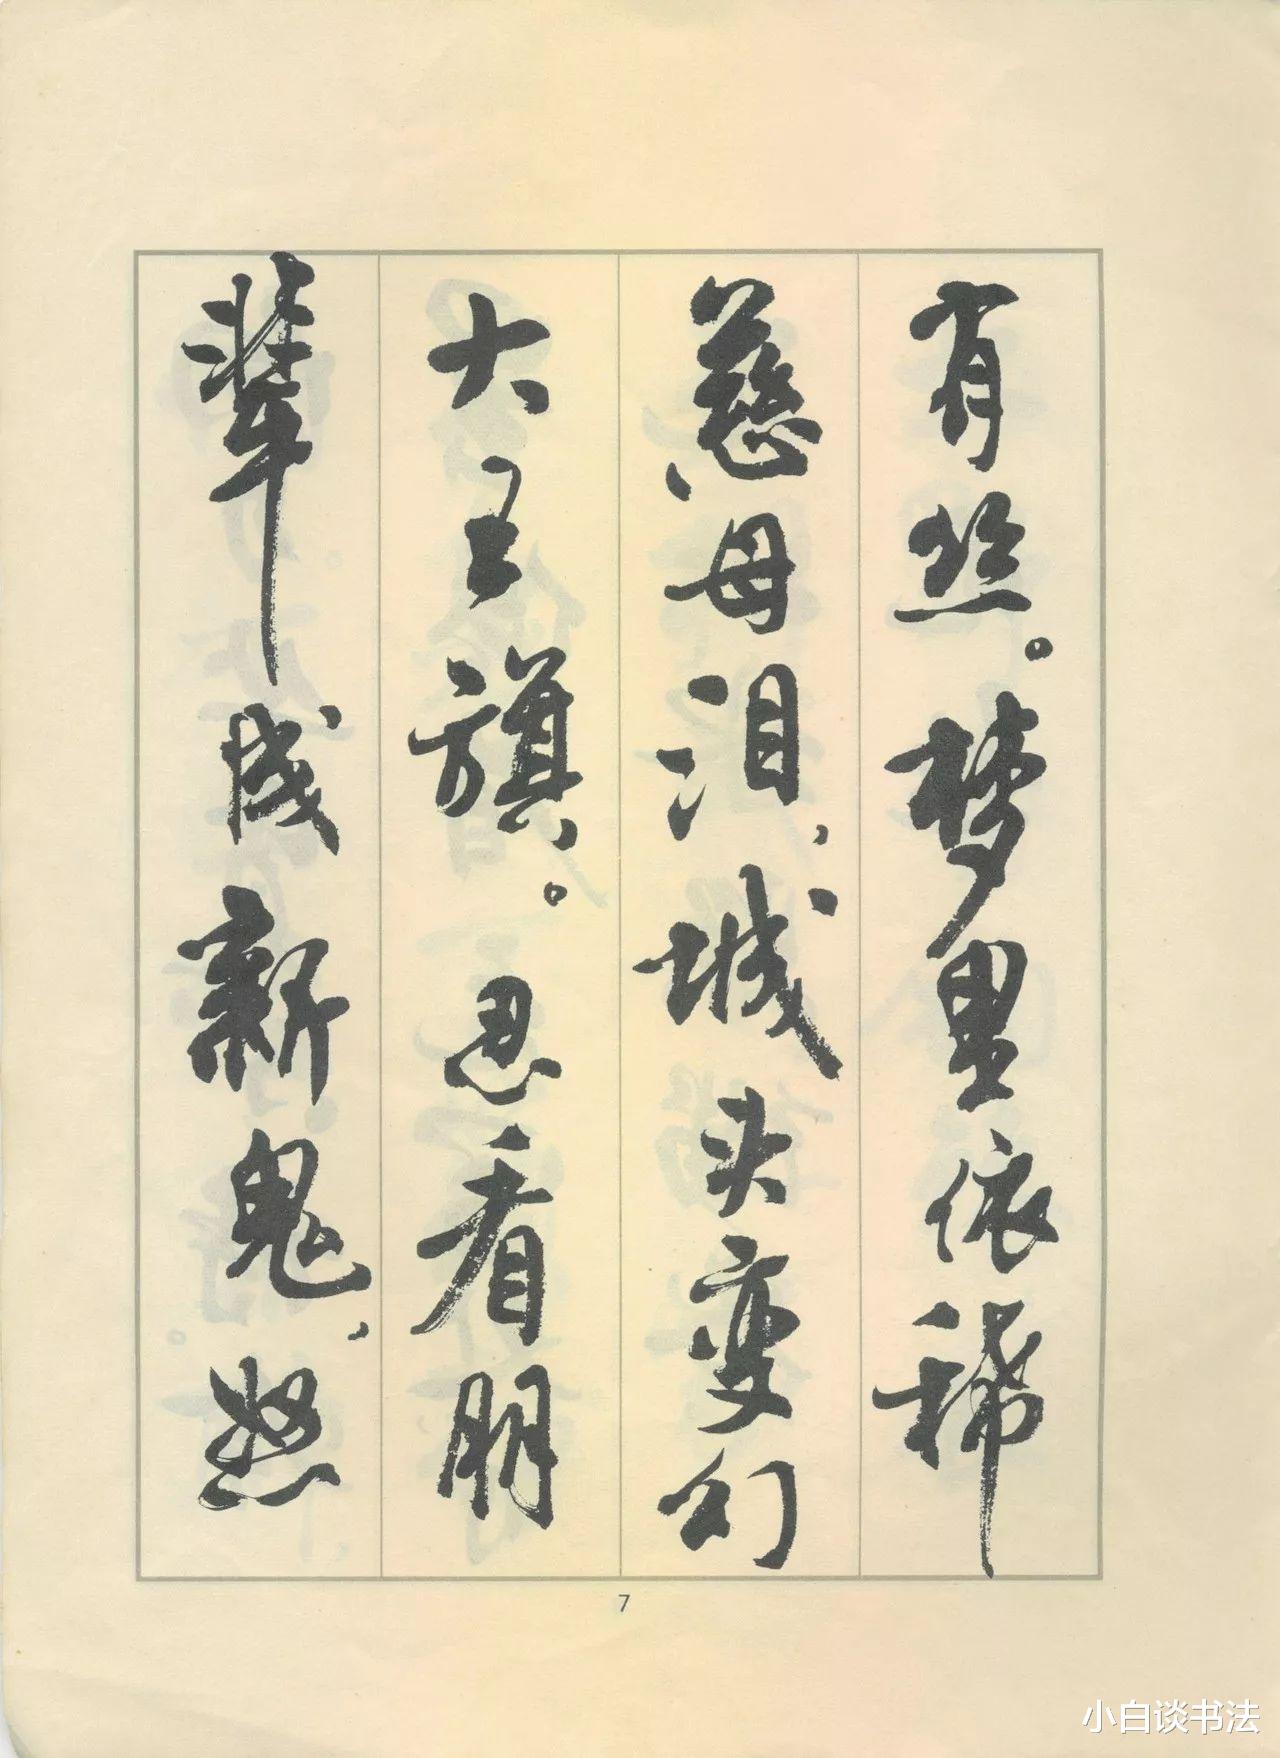 有丝。梦里依稀
慈母泪、城头变幻
大王旗。忍看朋
辈成新鬼、怒
7
小白谈书法